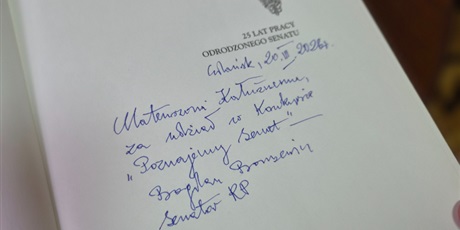 25 LAT PRACY
ODRODZONEGO SENATU
Gdańsk, 20.VI.2026r.
Mateuszowi Kałużnemu,
za udział w Konkursie
"Poznajemy Senat" —
Bogdan Borusewicz
Senator RP